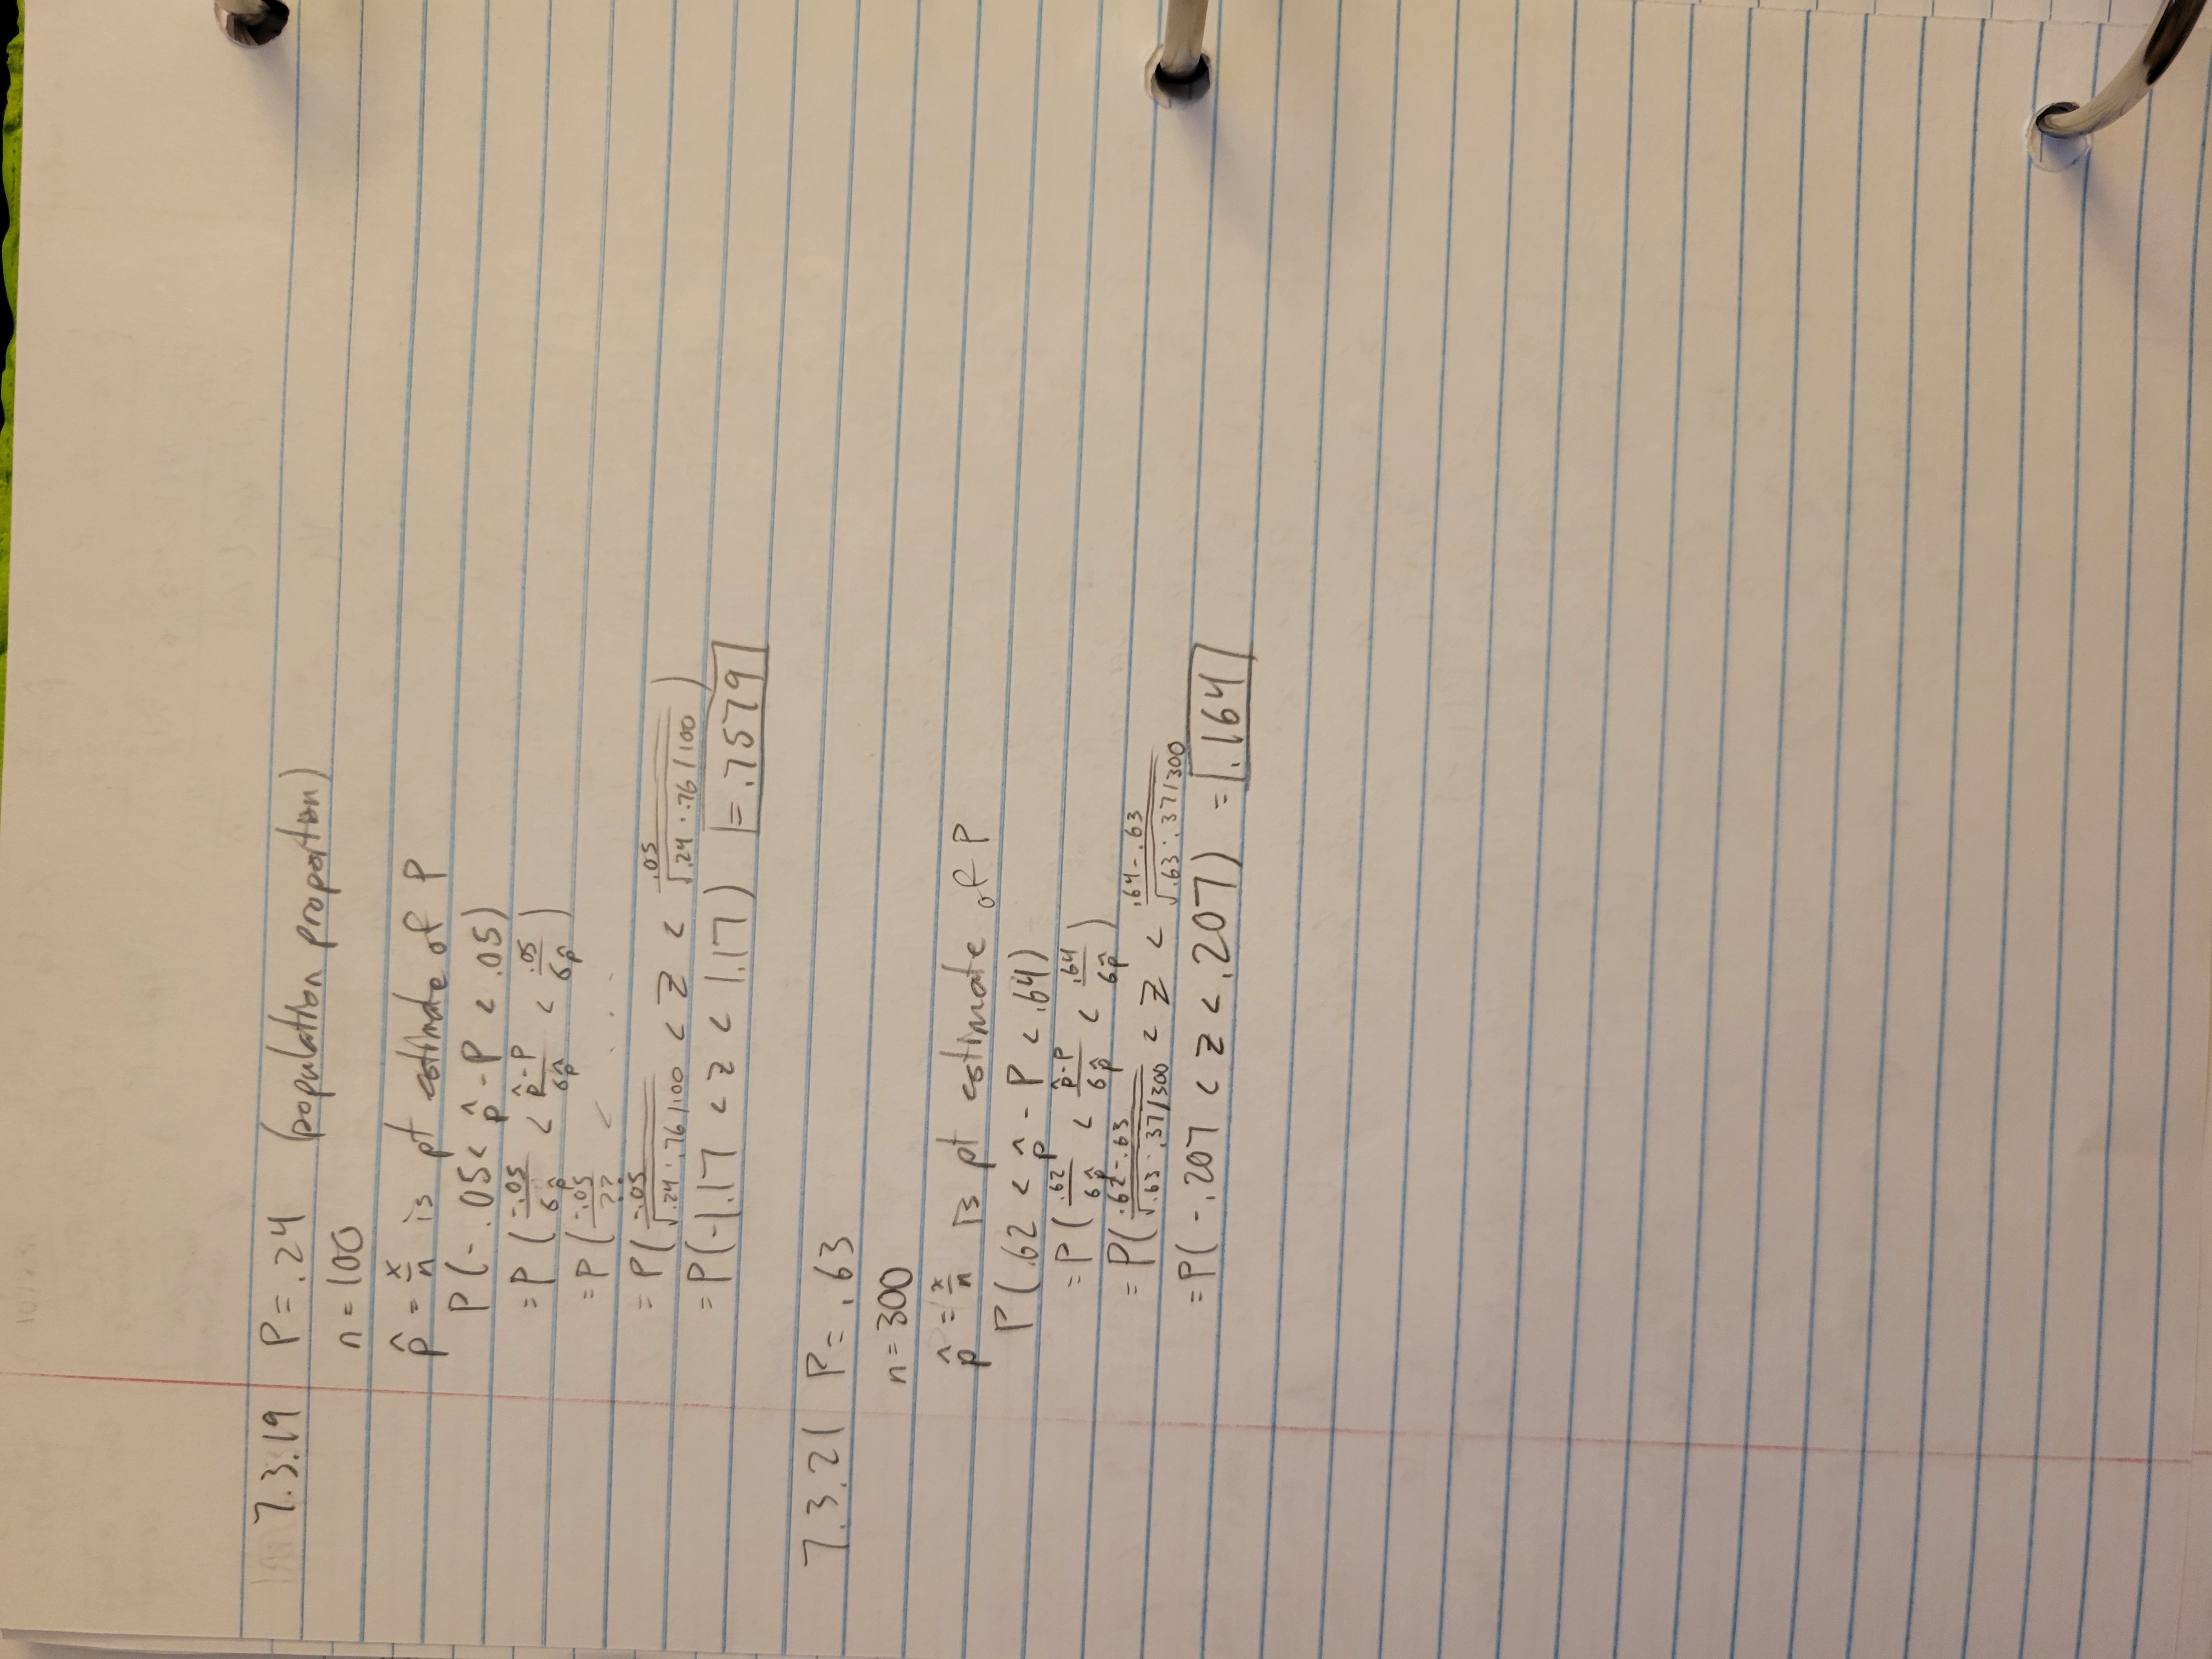 7.3.19 P = .24 (population proportion)
n = 100
p̂ = x/n is pt estimate of P
P(-.05 < p̂ - P < .05)
= P(-.05/σp̂ < p̂-P/σp̂ < .05/σp̂)
= P(-.05/?? < ...
= P(-.05/√.24·.76/100 < Z < .05/√.24·.76/100)
= P(-1.17 < z < 1.17) = .7579
7.3.21 P = .63
n = 300
p̂ = x/n is pt estimate of P
P(.62 < p̂ - P < .64)
= P(.62/σp̂ < p̂-P/σp̂ < .64/σp̂)
= P(.62-.63/√.63·.37/300 < Z < .64-.63/√.63·.37/300)
= P(-.207 < z < .207) = .164